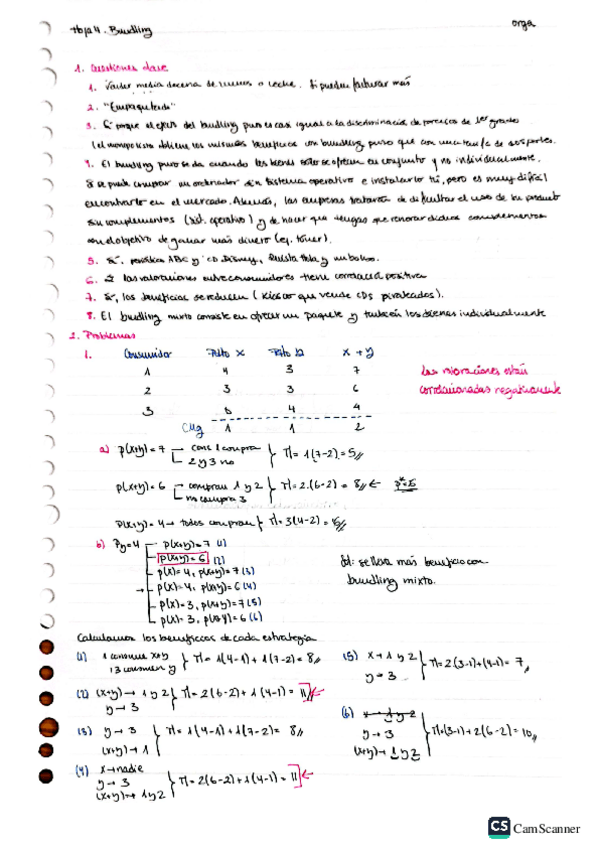 Hoja 4. Bundling
orga
1. Cuestiones clave
1. Vender media docena de huevos o leche. Si pueden facturar más
2. "Empaquetado"
3. Sí porque el efecto del bundling puro es casi igual a la discriminación de precios de 1er grado
(el monopolista obtiene los mismos beneficios con bundling puro que con una tarifa de dos partes.
4. El bundling puro se da cuando los bienes sólo se ofrecen en conjunto y no individualmente.
Sí se puede comprar un ordenador sin sistema operativo e instalarlo tú, pero es muy difícil
encontrarlo en el mercado. Además, las empresas tratarán de dificultar el uso de su producto
sin complementos (sist. operativo) y de hacer que tengas que renovar dichos complementos
con el objetivo de ganar más dinero (ej. tóner).
5. Sí. periódico ABC y CD Disney, revista y un bolso.
6. Sí las valoraciones entre consumidores tiene correlación positiva
7. Sí, los beneficios se reducen (kiosco que vende CDs pirateados).
8. El bundling mixto consiste en ofrecer un paquete y también los bienes individualmente
2. Problemas
1. Consumidor X X+Y
1 4 3 7
2 3 3 6
3 0 4 4
CMg 1 1 2
Las valoraciones están
correlacionadas negativamente
a) p(x+y)=7 cons 1 compra
2 y 3 no
Π=1(7-2)=5//
p(x+y)=6 compran 1 y 2
no compra 3
Π=2·(6-2)=8//←
p(x+y)=4 → todos compran Π=3(4-2)=6//
b) Py=4
p(x+y)=7 (1)
p(x+y)=6 (2)
p(x)=4, p(x+y)=7 (3)
p(x)=4, p(x+y)=6 (4)
p(x)=3, p(x+y)=7 (5)
p(x)=3, p(x+y)=6 (6)
Sol: se lleva más beneficio con
bundling mixto.
Calculamos los beneficios de cada estrategia
(1) 1 consume x+y
3 consumen y
Π=1(4-1)+1(7-2)=8//
(2) (x+y)→1 y 2
y→3
Π=2(6-2)+1(4-1)=11
(3) y→3
(x+y)→1
Π=1(4-1)+1(7-2)=8//
(4) x→nadie
y→3
(x+y)→1 y 2
Π=2(6-2)+1(4-1)=11
(5) x→1 y 2
y→3
Π=2(3-1)+(4-1)=7//
(6) x→1 y 2
y→3
(x+y)→1 y 2
Π=(3-1)+2(6-2)=10//
CS CamScanner